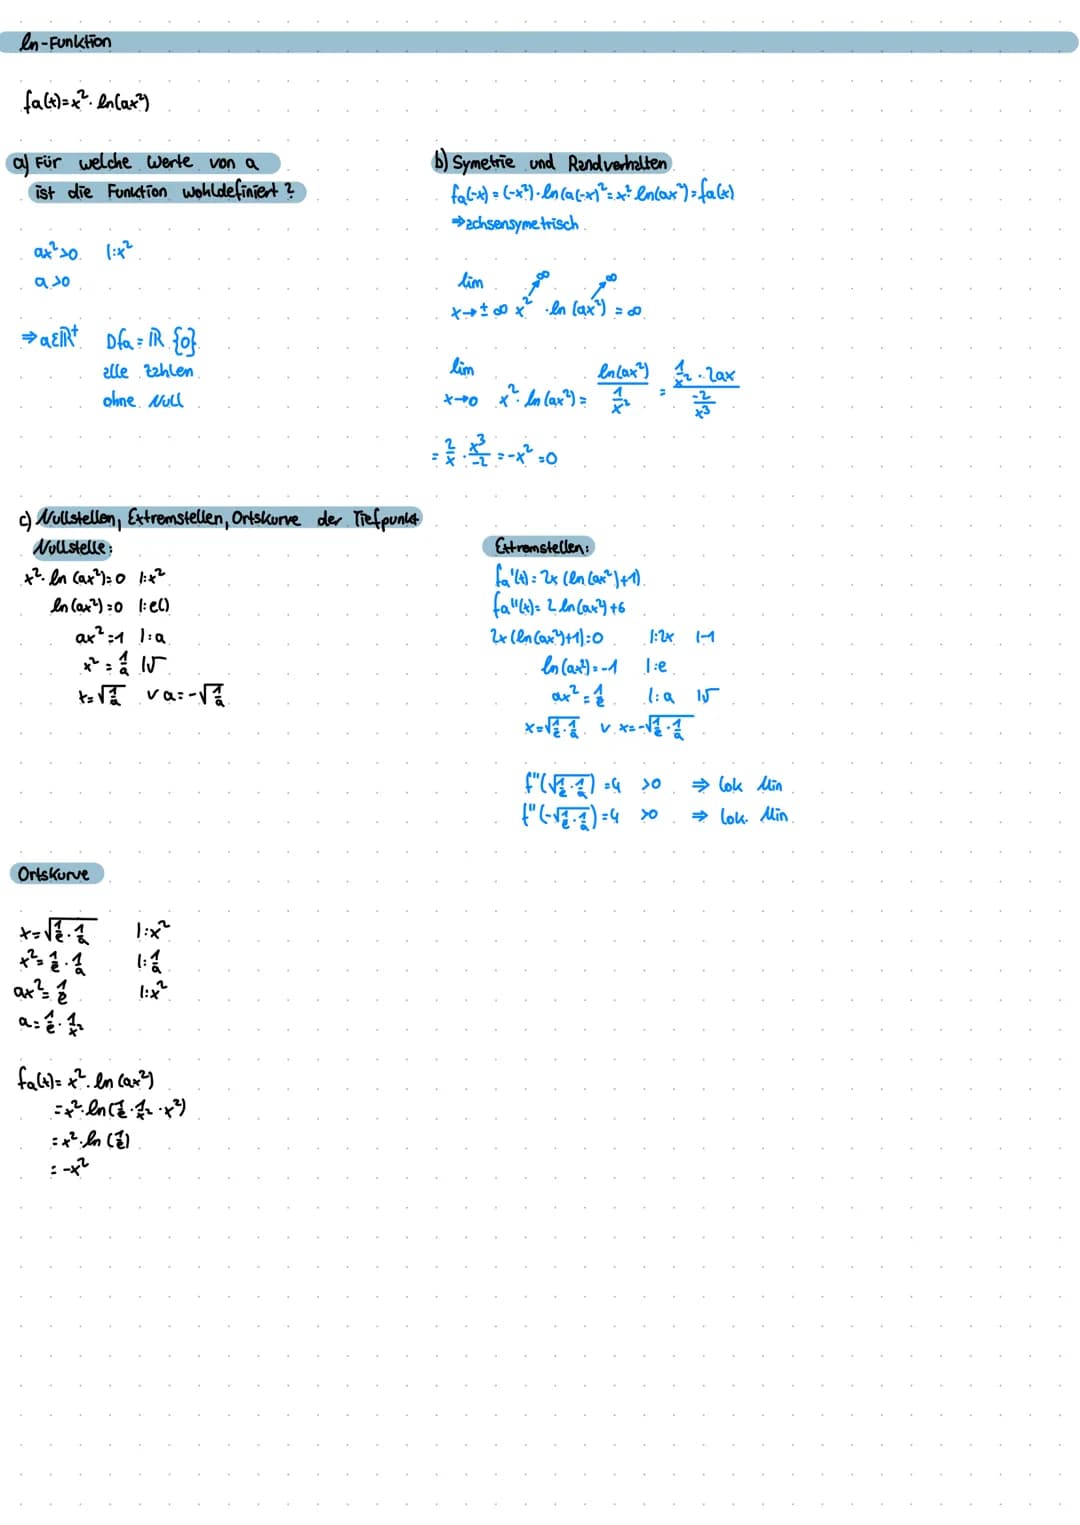 ln-Funktion
fa(x)=x²·ln(ax²)
a) Für welche Werte von a
ist die Funktion wohldefiniert?
ax²>0 |:x²
a>0
⇒a∈ℝ⁺ Dfa=ℝ {0}
alle Zahlen
ohne Null
b) Symetrie und Randverhalten
fa(-x)=(-x²)·ln(a(-x)²=x²·ln(ax²)=fa(x)
⇒achsensymetrisch
lim ∞ ∞
x→±∞ x²·ln(ax²)=∞
lim
x→0 x²·ln(ax²)= ln(ax²)/(1/x²) = (1/x²·2ax)/(-2/x³)
=2/x·x³/-2=-x²=0
c) Nullstellen, Extremstellen, Ortskurve der Tiefpunkt
Nullstelle:
x²·ln(ax²)=0 |:x²
ln(ax²)=0 |:e()
ax²=1 |:a
x²=1/a |√
x=√(1/a) ∨ a=-√(1/a)
Extremstellen:
fa'(x)=2x(ln(ax²)+1)
fa''(x)=2ln(ax²)+6
2x(ln(ax²)+1)=0 |:2x |-1
ln(ax²)=-1 |:e
ax²=1/e |:a |√
x=√(1/e·1/a) ∨ x=-√(1/e·1/a)
f''(√(1/e·1/a))=4 >0 ⇒ lok Min
f''(-√(1/e·1/a))=4 >0 ⇒ lok. Min
Ortskurve
x=√(1/e·1/a) |:x²
x²=1/e·1/a |:1/a
ax²=1/e |:x²
a=1/e·1/x²
fa(x)=x²·ln(ax²)
=x²·ln(1/e·1/x²·x²)
=x²·ln(1/e)
=-x²